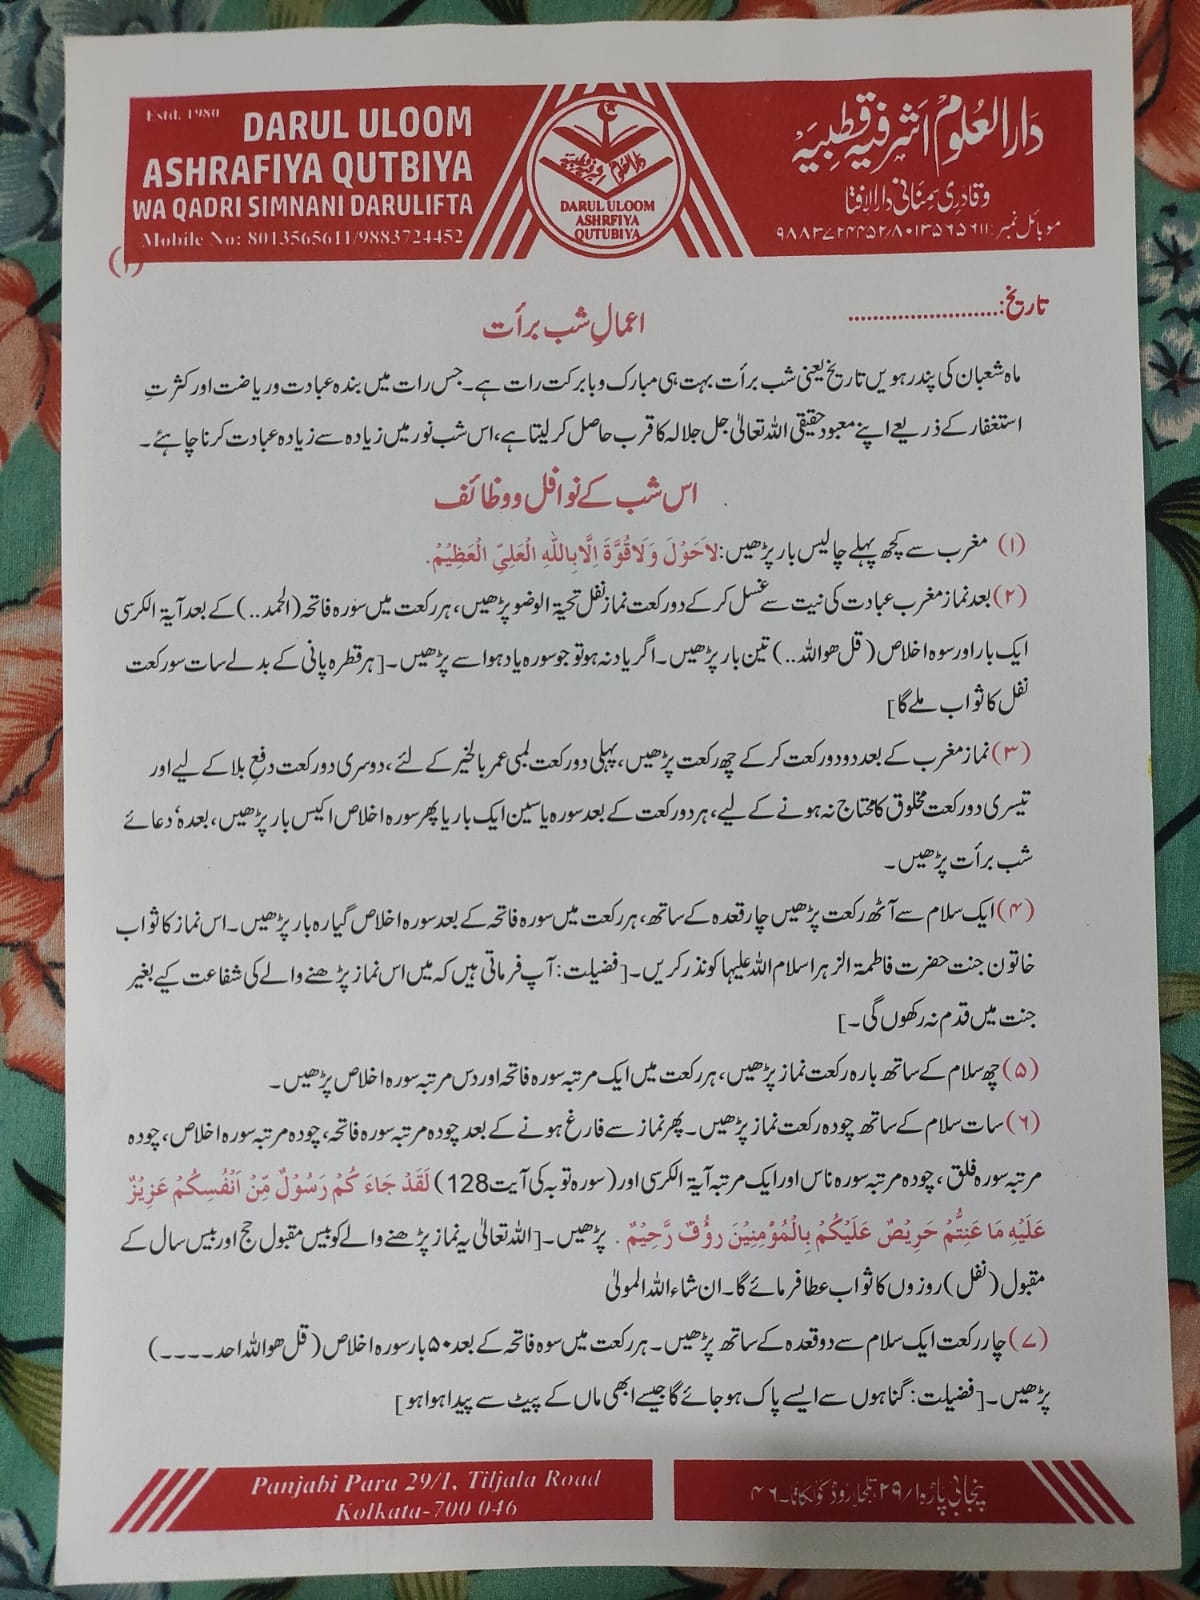 Estd. 1980
DARUL ULOOM
ASHRAFIYA QUTBIYA
WA QADRI SIMNANI DARULIFTA
Mobile No: 8013565611/9883724452
DARUL ULOOM
ASHRFIYA
QUTUBIYA
دَارالعُلوم اَشرفیہ قطبیہ
و قادری سِمنانی دارالافتا
موبائل نمبر: ۹۸۸۳۷۲۴۴۵۲/۸۰۱۳۵۶۵۶۱۱
(۱)
تاریخ:........................
اعمالِ شب برأت
ماہ شعبان کی پندرہویں تاریخ یعنی شب برأت بہت ہی مبارک و بابرکت رات ہے۔ جس رات میں بندہ عبادت و ریاضت اور کثرتِ
استغفار کے ذریعے اپنے معبود حقیقی اللہ تعالیٰ جل جلالہ کا قرب حاصل کر لیتا ہے، اس شب نور میں زیادہ سے زیادہ عبادت کرنا چاہئے۔
اس شب کے نوافل و وظائف
(۱) مغرب سے کچھ پہلے چالیس بار پڑھیں: لَاحَوْلَ وَلَاقُوَّةَ اِلَّابِاللهِ الْعَلِيِّ الْعَظِيْمُ.
(۲) بعد نماز مغرب عبادت کی نیت سے غسل کر کے دو رکعت نماز نفل تحیۃ الوضو پڑھیں، ہر رکعت میں سورہ فاتحہ (الحمد..) کے بعد آیۃ الکرسی
ایک بار اور سوہ اخلاص (قل ھو اللہ..) تین بار پڑھیں۔ اگر یاد نہ ہو تو جو سورہ یاد ہو اسے پڑھیں۔ [ہر قطرہ پانی کے بدلے سات سو رکعت
نفل کا ثواب ملے گا]
(۳) نماز مغرب کے بعد دو دو رکعت کر کے چھ رکعت پڑھیں، پہلی دو رکعت لمبی عمر بالخیر کے لئے، دوسری دو رکعت دفعِ بلا کے لیے اور
تیسری دو رکعت مخلوق کا محتاج نہ ہونے کے لیے، ہر دو رکعت کے بعد سورہ یاسین ایک بار یا پھر سورہ اخلاص اکیس بار پڑھیں، بعدہٗ دعائے
شب برأت پڑھیں۔
(۴) ایک سلام سے آٹھ رکعت پڑھیں چار قعدہ کے ساتھ، ہر رکعت میں سورہ فاتحہ کے بعد سورہ اخلاص گیارہ بار پڑھیں۔ اس نماز کا ثواب
خاتون جنت حضرت فاطمۃ الزہرا سلام اللہ علیہا کو نذر کریں۔ [فضیلت: آپ فرماتی ہیں کہ میں اس نماز پڑھنے والے کی شفاعت کیے بغیر
جنت میں قدم نہ رکھوں گی۔]
(۵) چھ سلام کے ساتھ بارہ رکعت نماز پڑھیں، ہر رکعت میں ایک مرتبہ سورہ فاتحہ اور دس مرتبہ سورہ اخلاص پڑھیں۔
(۶) سات سلام کے ساتھ چودہ رکعت نماز پڑھیں۔ پھر نماز سے فارغ ہونے کے بعد چودہ مرتبہ سورہ فاتحہ، چودہ مرتبہ سورہ اخلاص، چودہ
مرتبہ سورہ فلق، چودہ مرتبہ سورہ ناس اور ایک مرتبہ آیۃ الکرسی اور (سورہ توبہ کی آیت 128) لَقَدْ جَاءَ كُمْ رَسُوْلٌ مِّنْ اَنْفُسِكُمْ عَزِيْزٌ
عَلَيْهِ مَا عَنِتُّمْ حَرِيْصٌ عَلَيْكُمْ بِالْمُؤْمِنِيْنَ رَؤُفٌ رَّحِيْمٌ . پڑھیں۔ [اللہ تعالیٰ یہ نماز پڑھنے والے کو بیس مقبول حج اور بیس سال کے
مقبول (نفل) روزوں کا ثواب عطا فرمائے گا۔ ان شاء اللہ المولیٰ
(۷) چار رکعت ایک سلام سے دو قعدہ کے ساتھ پڑھیں۔ ہر رکعت میں سوہ فاتحہ کے بعد ۵۰ بار سورہ اخلاص (قل ھو اللہ احد۔۔۔۔)
پڑھیں۔ [فضیلت: گناہوں سے ایسے پاک ہو جائے گا جیسے ابھی ماں کے پیٹ سے پیدا ہوا ہو]
Panjabi Para 29/1, Tiljala Road
Kolkata-700 046
پنجابی پاڑہ ۲۹/۱، تلجلا روڈ کولکاتا۔ ۴۶